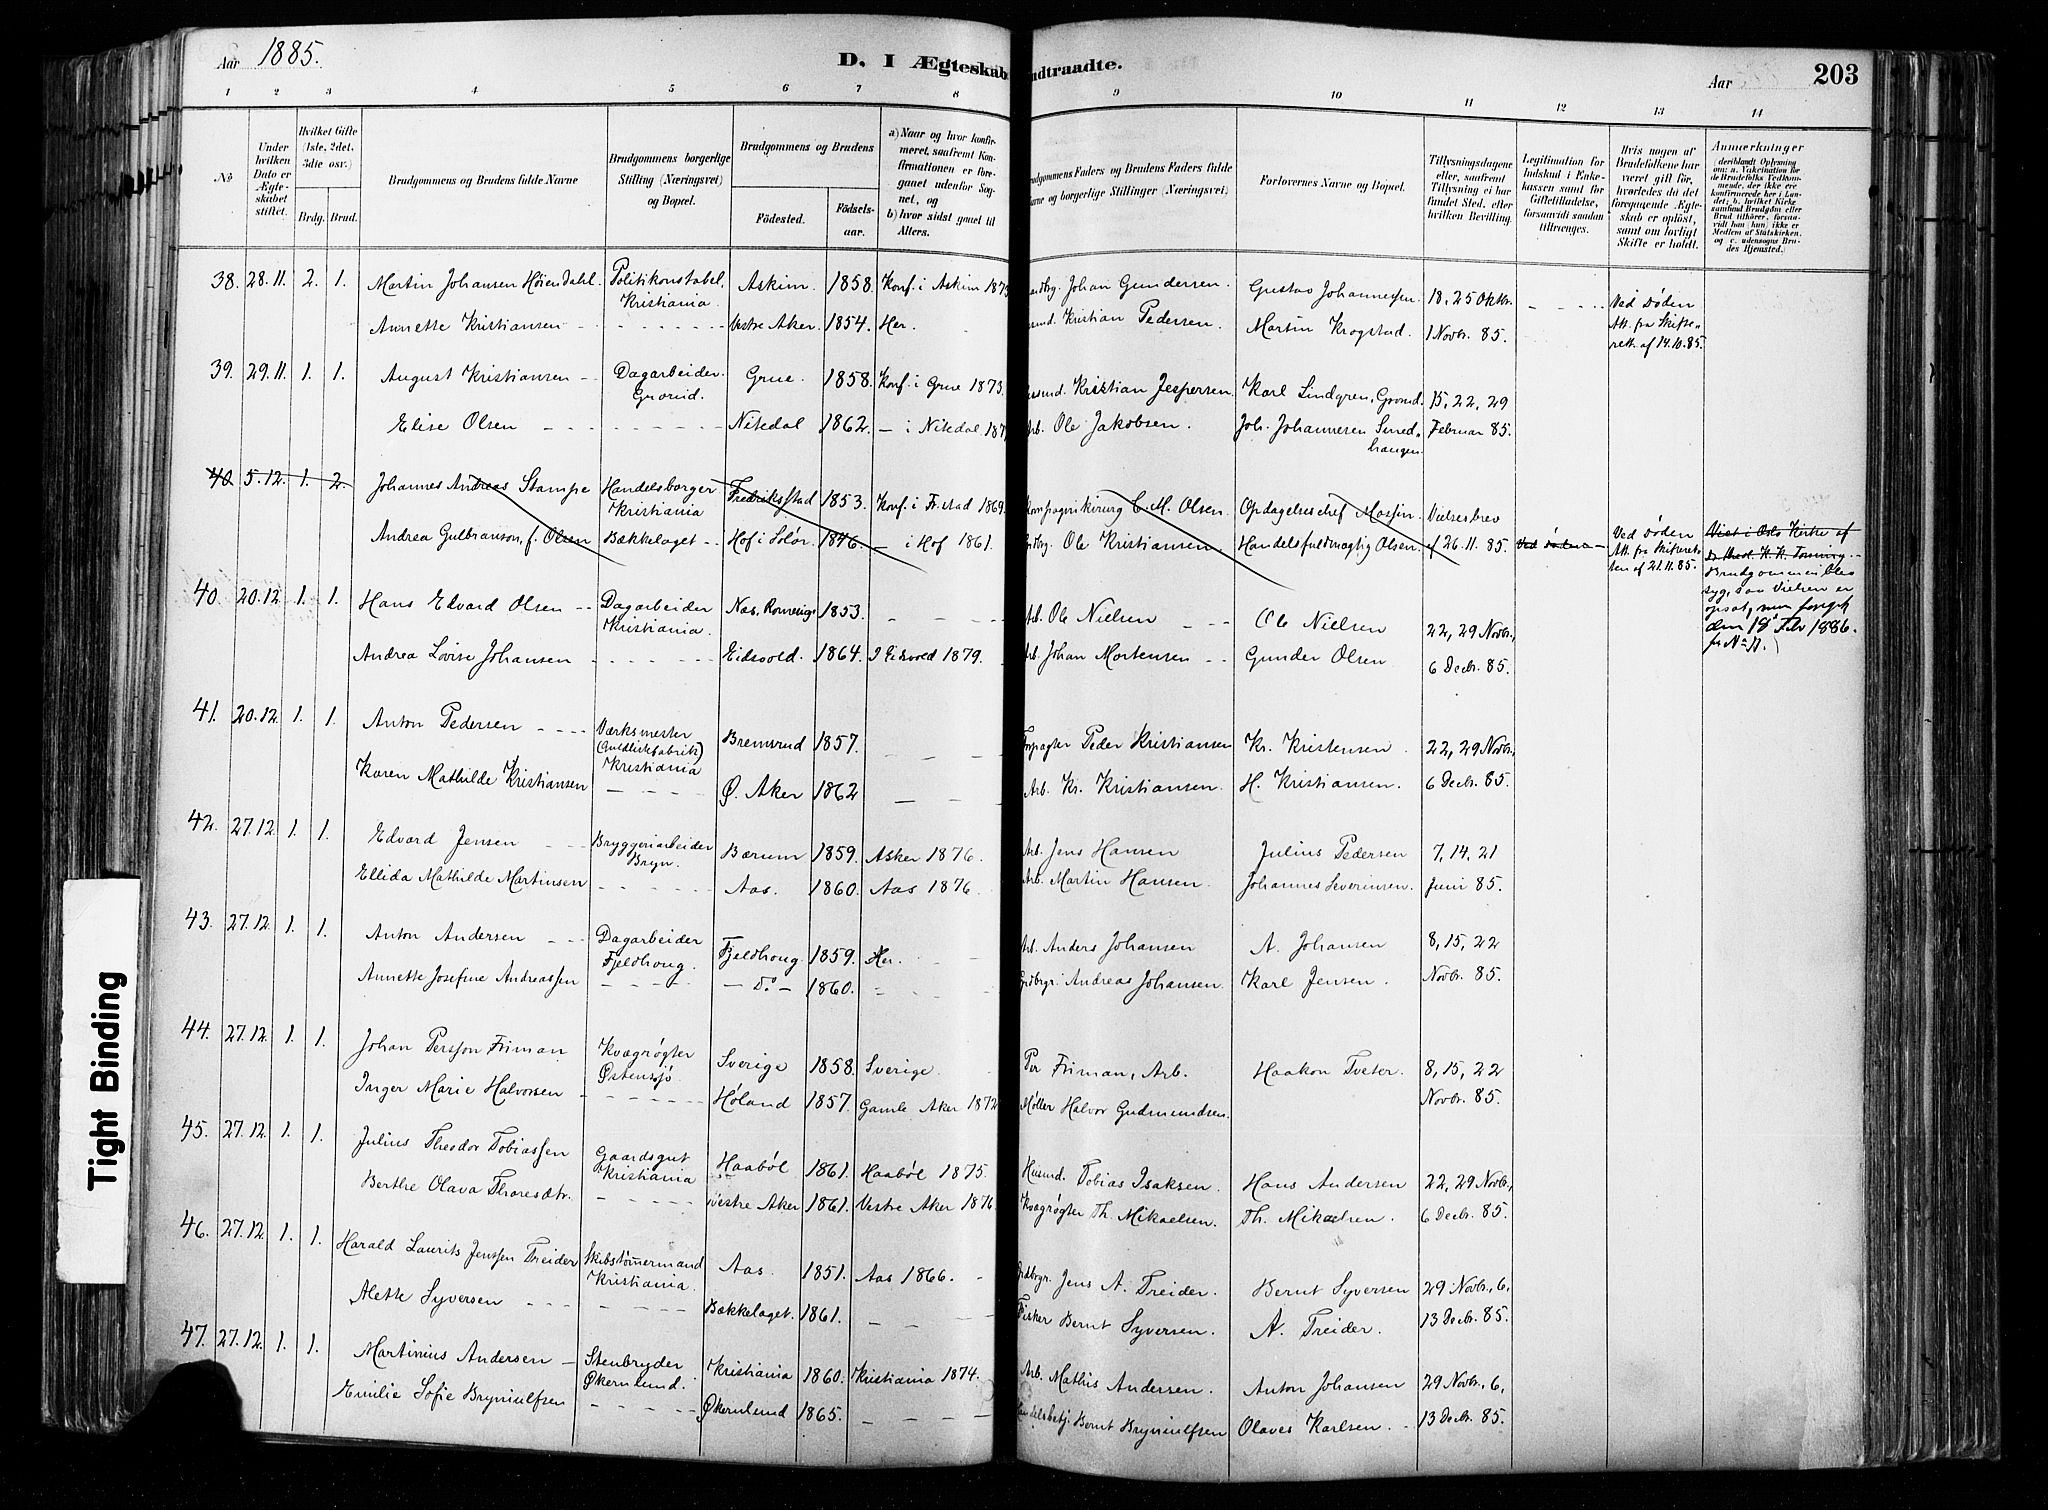 Aar 1885.
D. I Ægteskab indtraadte.
Aar
203
1 2 3 4 5 6 7 8 9 10 11 12 13 14
No
Under hvilken Dato er Ægteskabet stiftet.
Hvilket Gifte (1ste, 2det, 3die osv.)
Brdg. Brud.
Brudgommens og Brudens fulde Navne
Brudgommens borgerlige Stilling (Næringsvei) og Bopæl.
Brudgommens og Brudens
Födested. Födselsaar.
a) Naar og hvor konfirmeret, saafremt Konfirmationen er foregaaet udenfor Sognet, og b) hvor sidst gaaet til Alters.
Brudgommens Faders og Brudens Faders fulde Navne og borgerlige Stillinger (Næringsvei)
Forlovernes Navne og Bopæl.
Tillysningsdagene eller, saafremt Tillysning ei har fundet Sted, efter hvilken Bevilling.
Legitimation for Indskud i Enkekassen samt for Giftetilladelse, forsaavidt saadan tiltrænges.
Hvis nogen af Brudefolkene har været gift för, hvorledes da det foregaaende Ægteskab er oplöst, samt om lovligt Skifte er holdt.
Anmærkninger (deriblandt Oplysning om: a. Vakcination for de Brudefolks Vedkommende, der ikke ere konfirmerede her i Landet; b. hvilket Kirkesamfund Brudgom eller Brud tilhörer, forsaavidt han (hun) ikke er Medlem af Statskirken, og c. udensogns Brudes Hjemsted.
38. 28.11. 2. 1. Martin Johansen Høiendahl Politikonstabel, Kristiania. Askim. 1858. Konf. i Askim 1873 Johan Gundersen. Gustav Johannessen 18, 25 Oktbr. Ved Døden
Annette Kristiansen Vestre Aker. 1854. Her. Kristian Pedersen. Martin Krogstad. 1 Novbr. 85. Att. fra Skifterett. af 14.10.85.
39. 29.11. 1. 1. August Kristiansen Dagarbeider. Grorud. Grue. 1858. Konf. i Grue 1873. Kristian Jespersen Karl Lindgren, Grorud. 15, 22, 29
Elise Olsen Nitedal 1862. — i Nitedal Arb. Ole Jakobsen. Joh. Johannesen Februar 85.
40. 5.12. 1. 2. Johannes Andreas Stampe Handelsborger Kristiania Fredriksstad 1853. Konf. i Fr.stad 1869. C. M. Olsen. Opdagelseschef Mossin. Vielsesbrev
Andrea Gulbranson, f. Olsen Bækkelaget Hof i Solør. 1846. — i Hof 1861. Ole Kristiansen. Handelsfuldmægtig Olsen. af 26.11.85. Ved døden Ved Døden Att. fra Skifteretten af 21.11.85. Viet i Oslo Kirke af
Brudgommen blev syg, saa Vielsen er opsat, men foregik den 18 Feb 1886.
40. 20.12 1. 1. Hans Edvard Olsen Dagarbeider Kristiania. Nas, Romerige 1853. Arb. Ole Nielsen Ole Nielsen 22, 29 Novbr.,
Andrea Lovise Johansen Eidsvold. 1864. I Eidsvold 1879. Arb. Johan Mortensen Gunder Olsen 6 Decbr. 85.
41. 20.12. 1. 1. Anton Pedersen Værksmester (Guldlistefabrik) Kristiania Bremsrud 1857. Forpagter Peder Kristiansen Kr. Kristensen. 22, 29 Novbr.,
Karen Mathilde Kristiansen Ø. Aker 1862 Arb. Kr. Kristiansen. H. Kristiansen. 6 Decbr. 85.
42. 27.12. 1. 1. Edvard Jensen Bryggeriarbeider Bryn. Bærum 1859. Asker 1876. Arb. Jens Hansen Julius Pedersen 7, 14, 21
Ellida Mathilde Martinsen Aas. 1860. Aas 1876. Arb. Martin Hansen. Johannes Severinsen. Juni 85.
43. 27.12. 1. 1. Anton Andersen Dagarbeider Fjeldhoug. Fjeldhoug 1859. Her. Arb. Anders Johansen A. Johansen 8, 15, 22
Annette Josefine Andreassen — Do — 1860. Andreas Johansen. Karl Jensen. Novbr. 85.
44. 27.12. 1. 1. Johan Persson Friman Kvægrøgter Østensjø. Sverige 1858. Sverige. Per Friman, Arb. Haakon Tveter. 8, 15, 22
Inger Marie Halvorsen Høland 1857. Gamle Aker 1872 Møller Halvor Gudmundsen. Novbr. 85.
45. 27.12. 1. 1. Julius Theodor Tobiassen Gaardsgut Kristiania Haabøl 1861. Haabøl 1875. Husmd. Tobias Isaksen. Hans Andersen 22, 29 Novbr.,
Berthe Olava Thoresdtr. Vestre Aker 1861. Vestre Aker 1876. Kvægrøgter Th. Mikaelsen. Th. Mikaelsen. 6 Decbr. 85.
46. 27.12. 1. 1. Harald Laurits Jenssen Treider Skibstømmermand Kristiania. Aas. 1851. Aas 1866. Jens A. Treider. Bernt Syversen 29 Novbr., 6,
Alette Syversen Bækkelaget. 1861. Fisker Bernt Syversen. A. Treider. 13 Decbr. 85.
47. 27.12. 1. 1. Martinius Andersen Stenbryder Økernlund. Kristiania 1860. Kristiania 1874. Arb. Mathis Andersen. Anton Johansen 29 Novbr., 6,
Emilie Sofie Bryniulfsen Økernlund 1865. Bernt Bryniulfsen Olaves Karlsen. 13 Decbr. 85.
Tight Binding